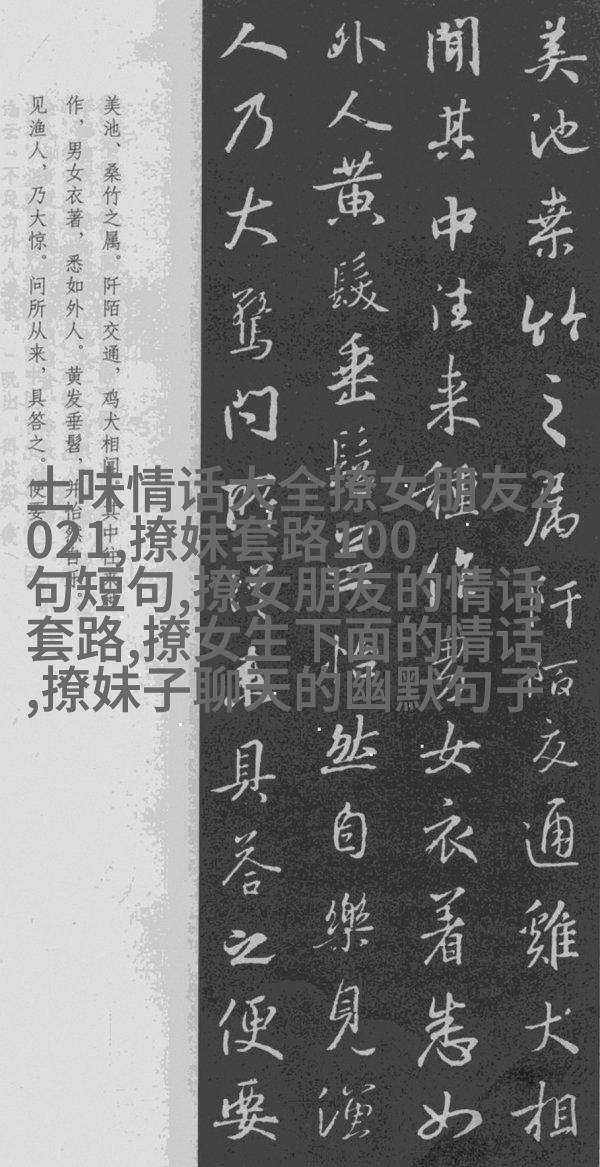 美池桒竹之属阡陌交通雞犬相
聞其中往来種作男女衣着悉如
外人黄髮垂髫並怡然自樂見漁
人乃大驚問所從来具荅之便要
美池、桑竹之属。阡陌交通，鸡犬相闻。其中往来种
作，男女衣著，悉如外人。黄发垂髫，并怡然自乐。
见渔人，乃大惊。问所从来，具答之。便要
土味情话大全撩女朋友2
021,撩妹套路100
句短句,撩女朋友的情话
套路,撩女生下面的情话
,撩妹子聊天的幽默句子